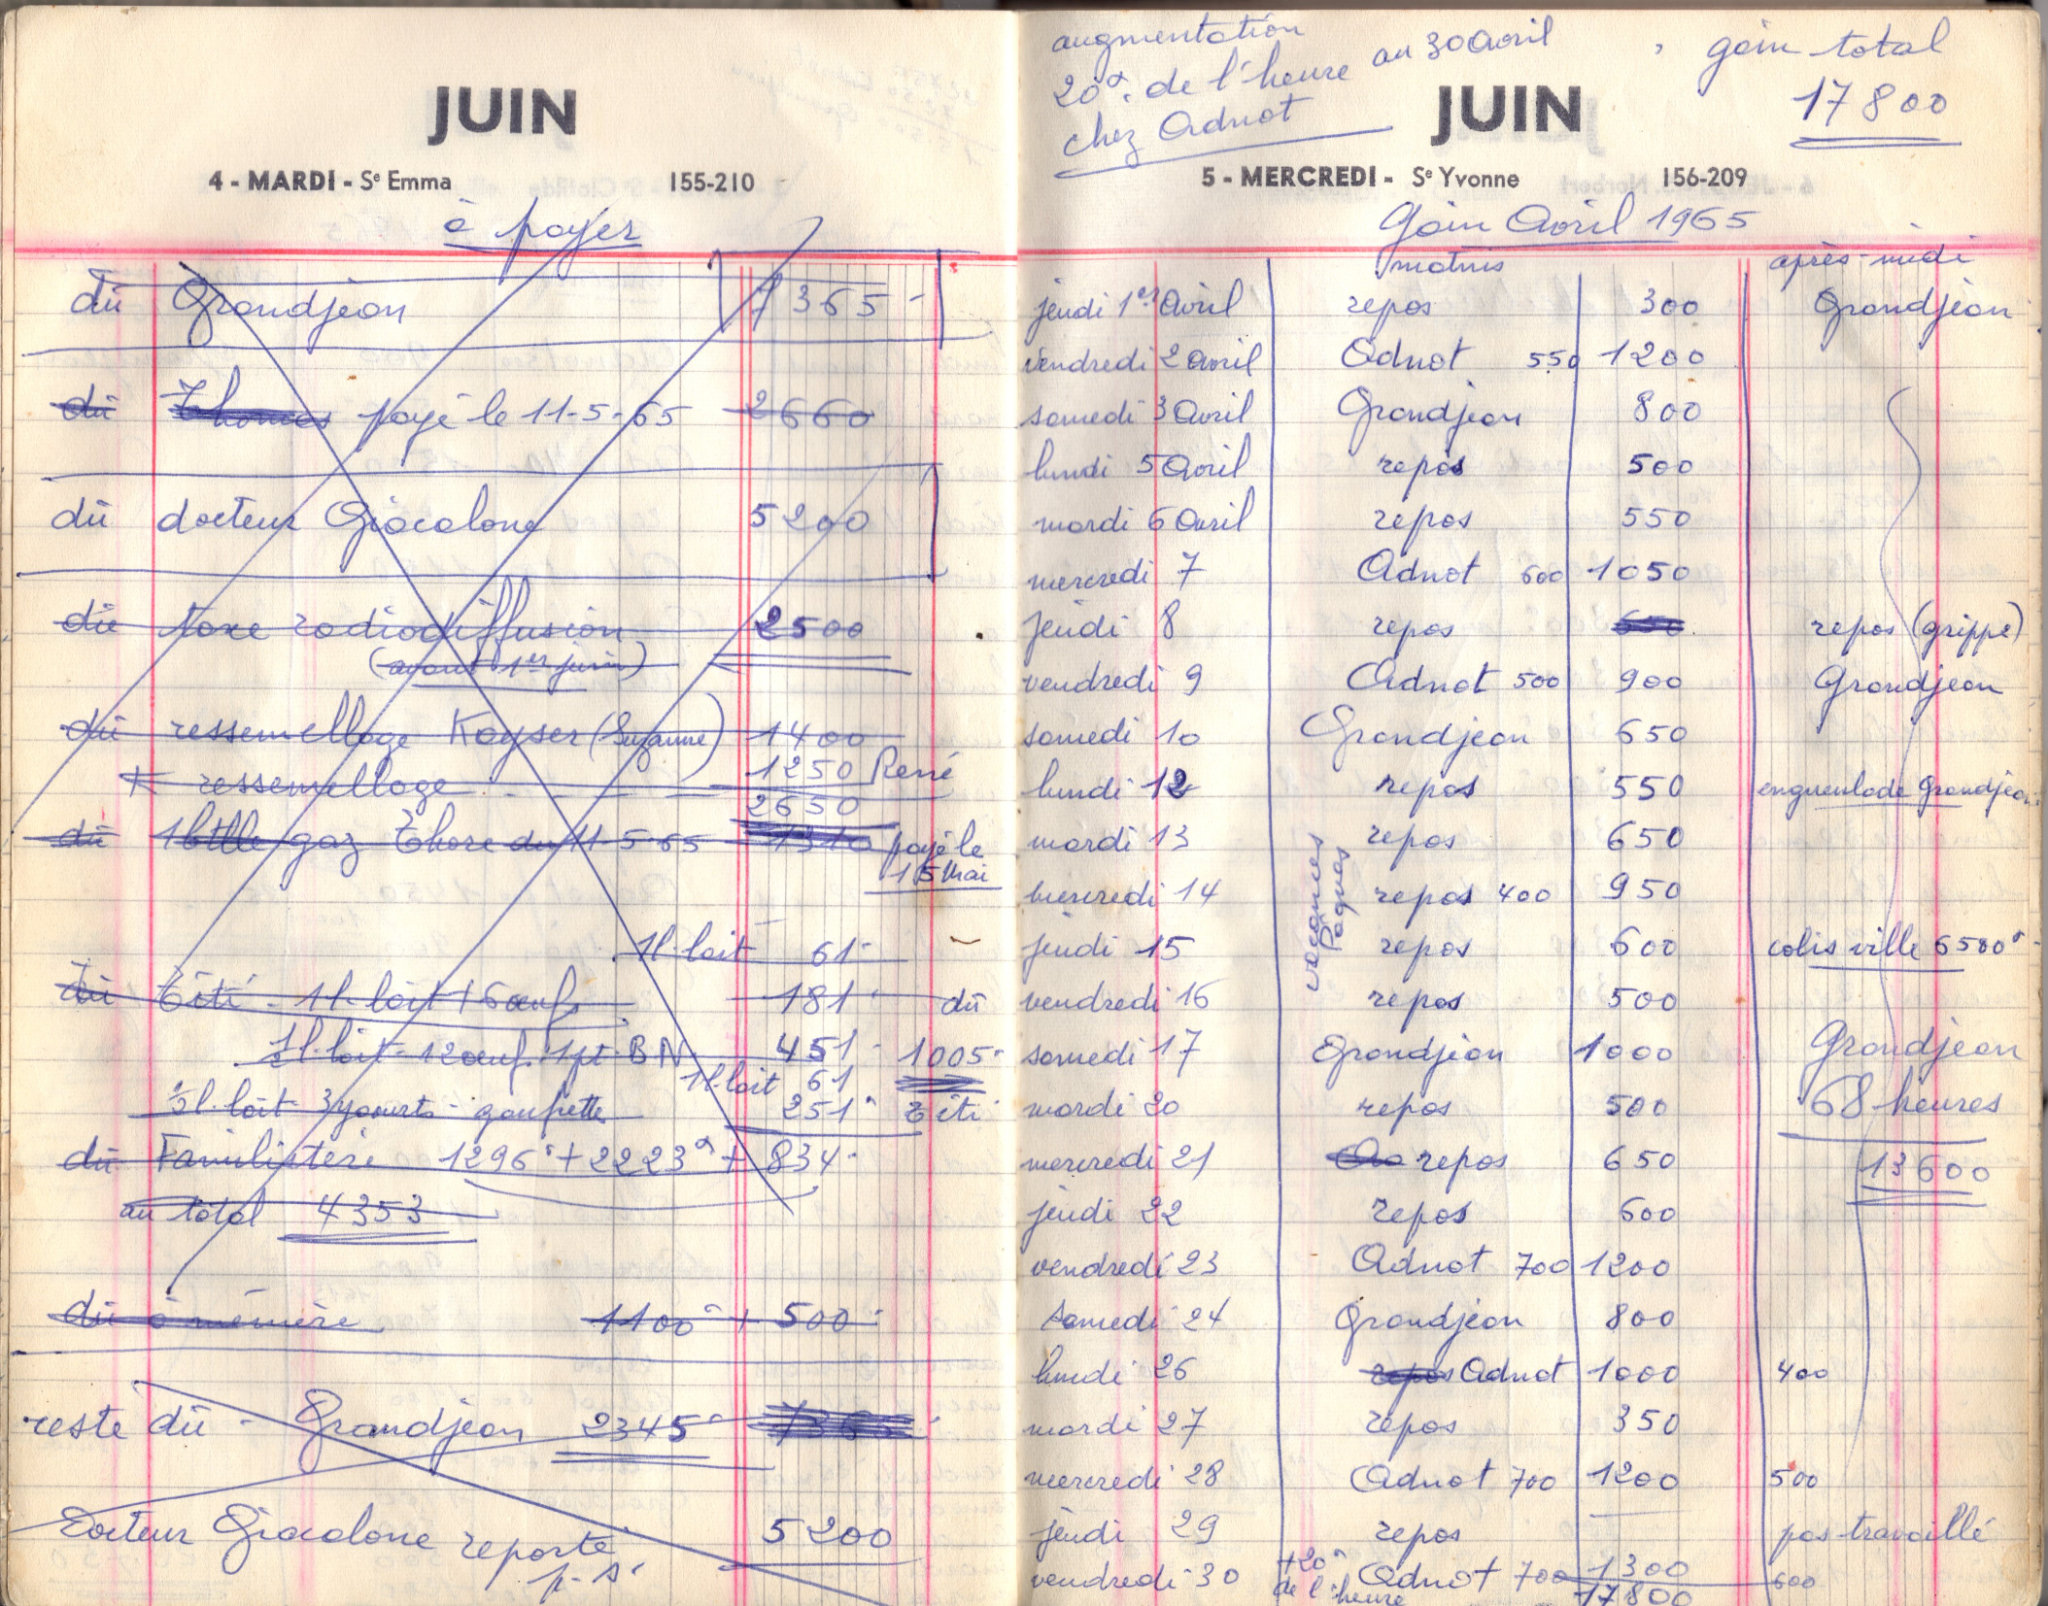 JUIN
4 - MARDI - Se Emma 155-210
à payer
dû Grandjean 7365
dû Thomas payé le 11-5-65 2660
dû docteur Giacolone 5200
dû taxe radiodiffusion 2500
(avant 1er juin)
dû ressemellage Kayser (Suzanne) 1400
ressemellage 1250 René
2650
dû 1 btlle gaz Thore du 11-5-65 1310 payé le
15 Mai
1l. lait 61
dû Titi - 1l. lait + 6 oeufs 181 dû
1l. lait - 12 oeufs 1 pt BN 451 1005
1l. lait 61
½ l. lait 3 yaourts - gaufrette 251 Titi
dû Familistère 1296 + 2223 + 834
au total 4353
dû à mémère 1100 + 500
reste dû - Grandjean 2345 7365
Docteur Giacolone reporté 5200
p. s.
augmentation au 30 avril, gain total
20 de l'heure 17800
chez Adnot
JUIN
5 - MERCREDI - Se Yvonne 156-209
Gain Avril 1965
matins après-midi
jeudi 1er Avril repos 300 Grandjean
vendredi 2 avril Adnot 550 1200
samedi 3 Avril Grandjean 800
lundi 5 Avril repos 500
mardi 6 Avril repos 550
mercredi 7 Adnot 600 1050
jeudi 8 repos repos (grippe)
vendredi 9 Adnot 500 900 Grandjean
samedi 10 Grandjean 650
lundi 12 repos 550 engueulade Grandjean
mardi 13 repos 650
vacances Paques
mercredi 14 repos 400 950
jeudi 15 repos 600 colis ville 6580
vendredi 16 repos 500
samedi 17 Grandjean 1000 Grandjean
mardi 20 repos 500 68 heures
mercredi 21 repos 650 13600
jeudi 22 repos 600
vendredi 23 Adnot 700 1200
samedi 24 Grandjean 800
lundi 26 repos Adnot 1000 400
mardi 27 repos 350
mercredi 28 Adnot 700 1200 500
jeudi 29 repos — pas travaillé
vendredi 30 +20 de l'heure Adnot 700 1300 600
17800